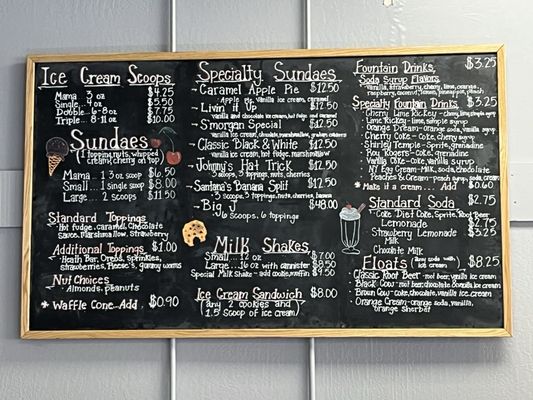 Ice Cream Scoops
Mama 3 oz $4.25
Single 4 oz $5.50
Double 6-8 oz $7.75
Triple 8-11 oz $10.00
Sundaes
(1 topping, nuts, whipped
cream, cherry on top)
Mama 1 3 oz scoop $6.50
Small 1 single scoop $8.00
Large 2 scoops $11.50
Standard Toppings
Hot fudge, caramel, Chocolate
Sauce, Marshmallow, Strawberry
Additional Toppings $1.00
Heath Bar, Oreos, sprinkles,
strawberries, Reese's, gummy worms
Nut Choices
Almonds, peanuts
* Waffle Cone...Add $0.90
Specialty Sundaes
Caramel Apple Pie $12.50
Apple pie, vanilla ice cream, caramel
Livin' it Up $17.50
vanilla and chocolate ice cream, hot fudge and caramel
S'morgan Special $12.50
vanilla ice cream, chocolate, marshmallow, graham crackers
Classic Black & White $12.50
vanilla ice cream, hot fudge, marshmallow
Johnny's Hat Trick $12.50
3 scoops, 3 toppings, nuts, cherries
Santana's Banana Split $12.50
3 scoops, 3 toppings, nuts, cherries, banana
Big J $48.00
16 scoops, 6 toppings
Milk Shakes
Small...12 oz $7.00
Large...16 oz with cannister $8.50
Special Milk Shake - add cookie, muffin $9.50
Ice Cream Sandwich $8.00
(any 2 cookies and
1.5 scoop of ice cream)
Fountain Drinks $3.25
Soda Syrup Flavors
vanilla, strawberry, cherry, lime, orange,
raspberry, coconut, lemon, pineapple, peach
Specialty Fountain Drinks $3.25
Cherry Lime Rickey - cherry, lime, simple syrup
Lime Rickey - lime, simple syrup
Orange Dream - orange soda, vanilla syrup
Roy Rogers - Coke, grenadine
Cherry Coke - Coke, cherry syrup
Shirley Temple - Sprite, grenadine
Vanilla Coke - Coke, vanilla syrup
NY Egg Cream - Milk, soda, chocolate
Peaches & Cream - peach syrup, soda, cream
* Make it a cream... Add $0.60
Standard Soda $2.75
Coke, Diet Coke, Sprite, Root Beer
Lemonade $2.75
Strawberry Lemonade $3.25
Milk
Chocolate Milk
Floats (any soda with ice cream) $8.25
Classic Root Beer - root beer, vanilla ice cream
Black Cow - root beer, chocolate & vanilla ice cream
Brown Cow - coke, chocolate, vanilla ice cream
Orange Cream - orange soda, vanilla,
orange sherbet